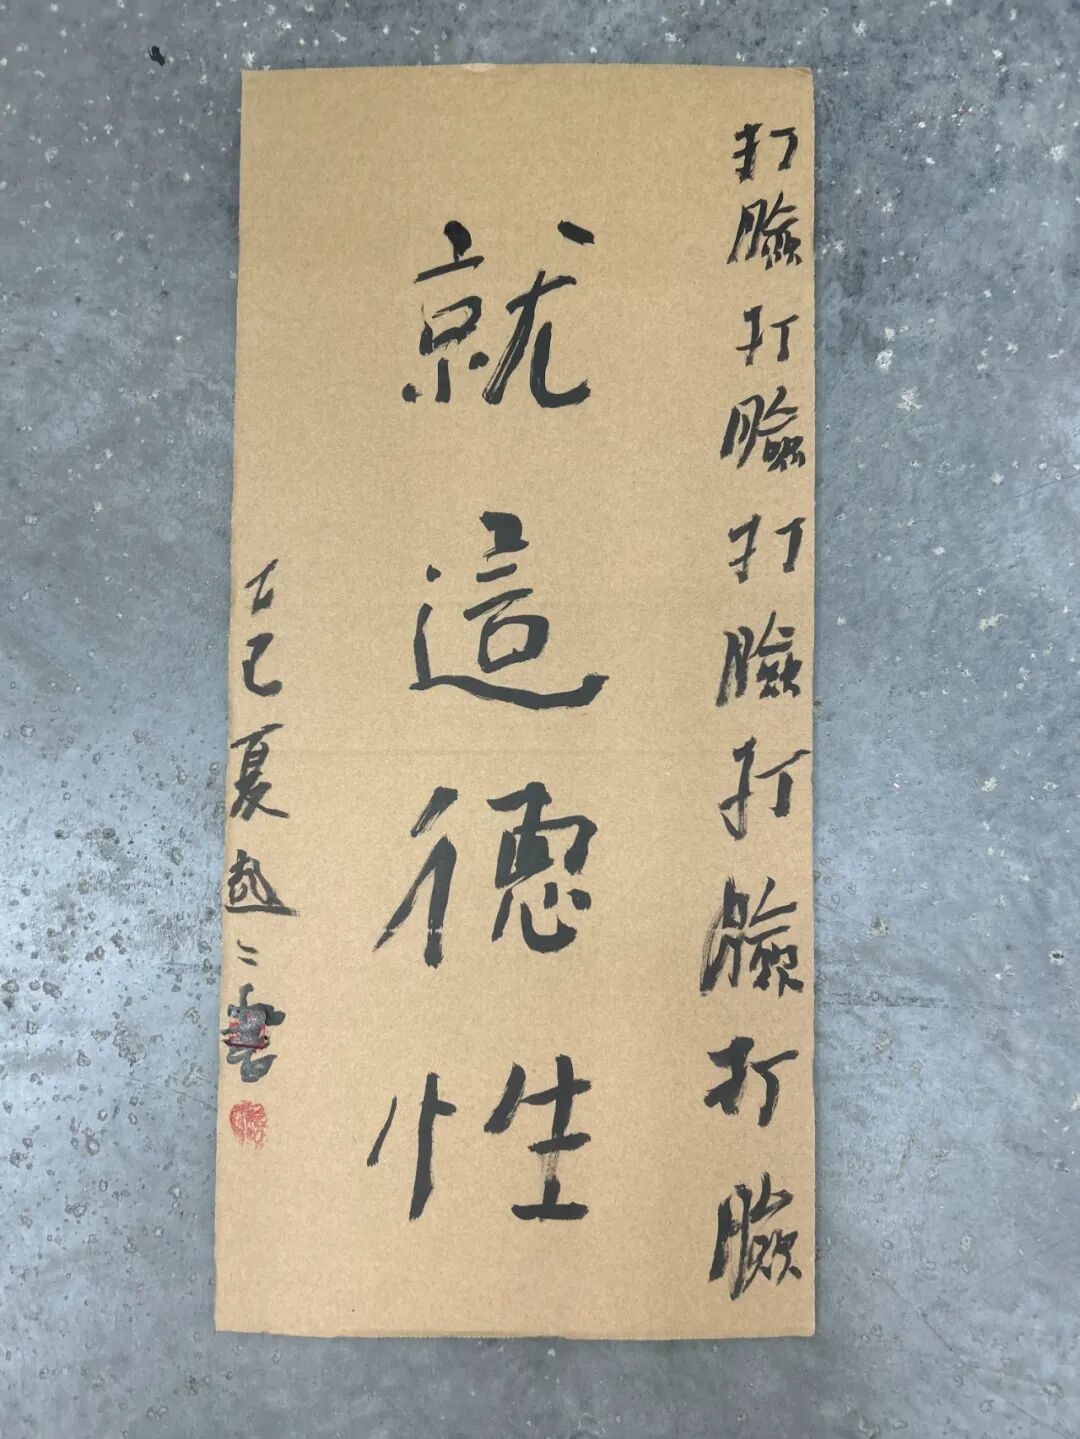 打臉打臉打臉打臉打臉
就這德性
乙巳夏趙二書